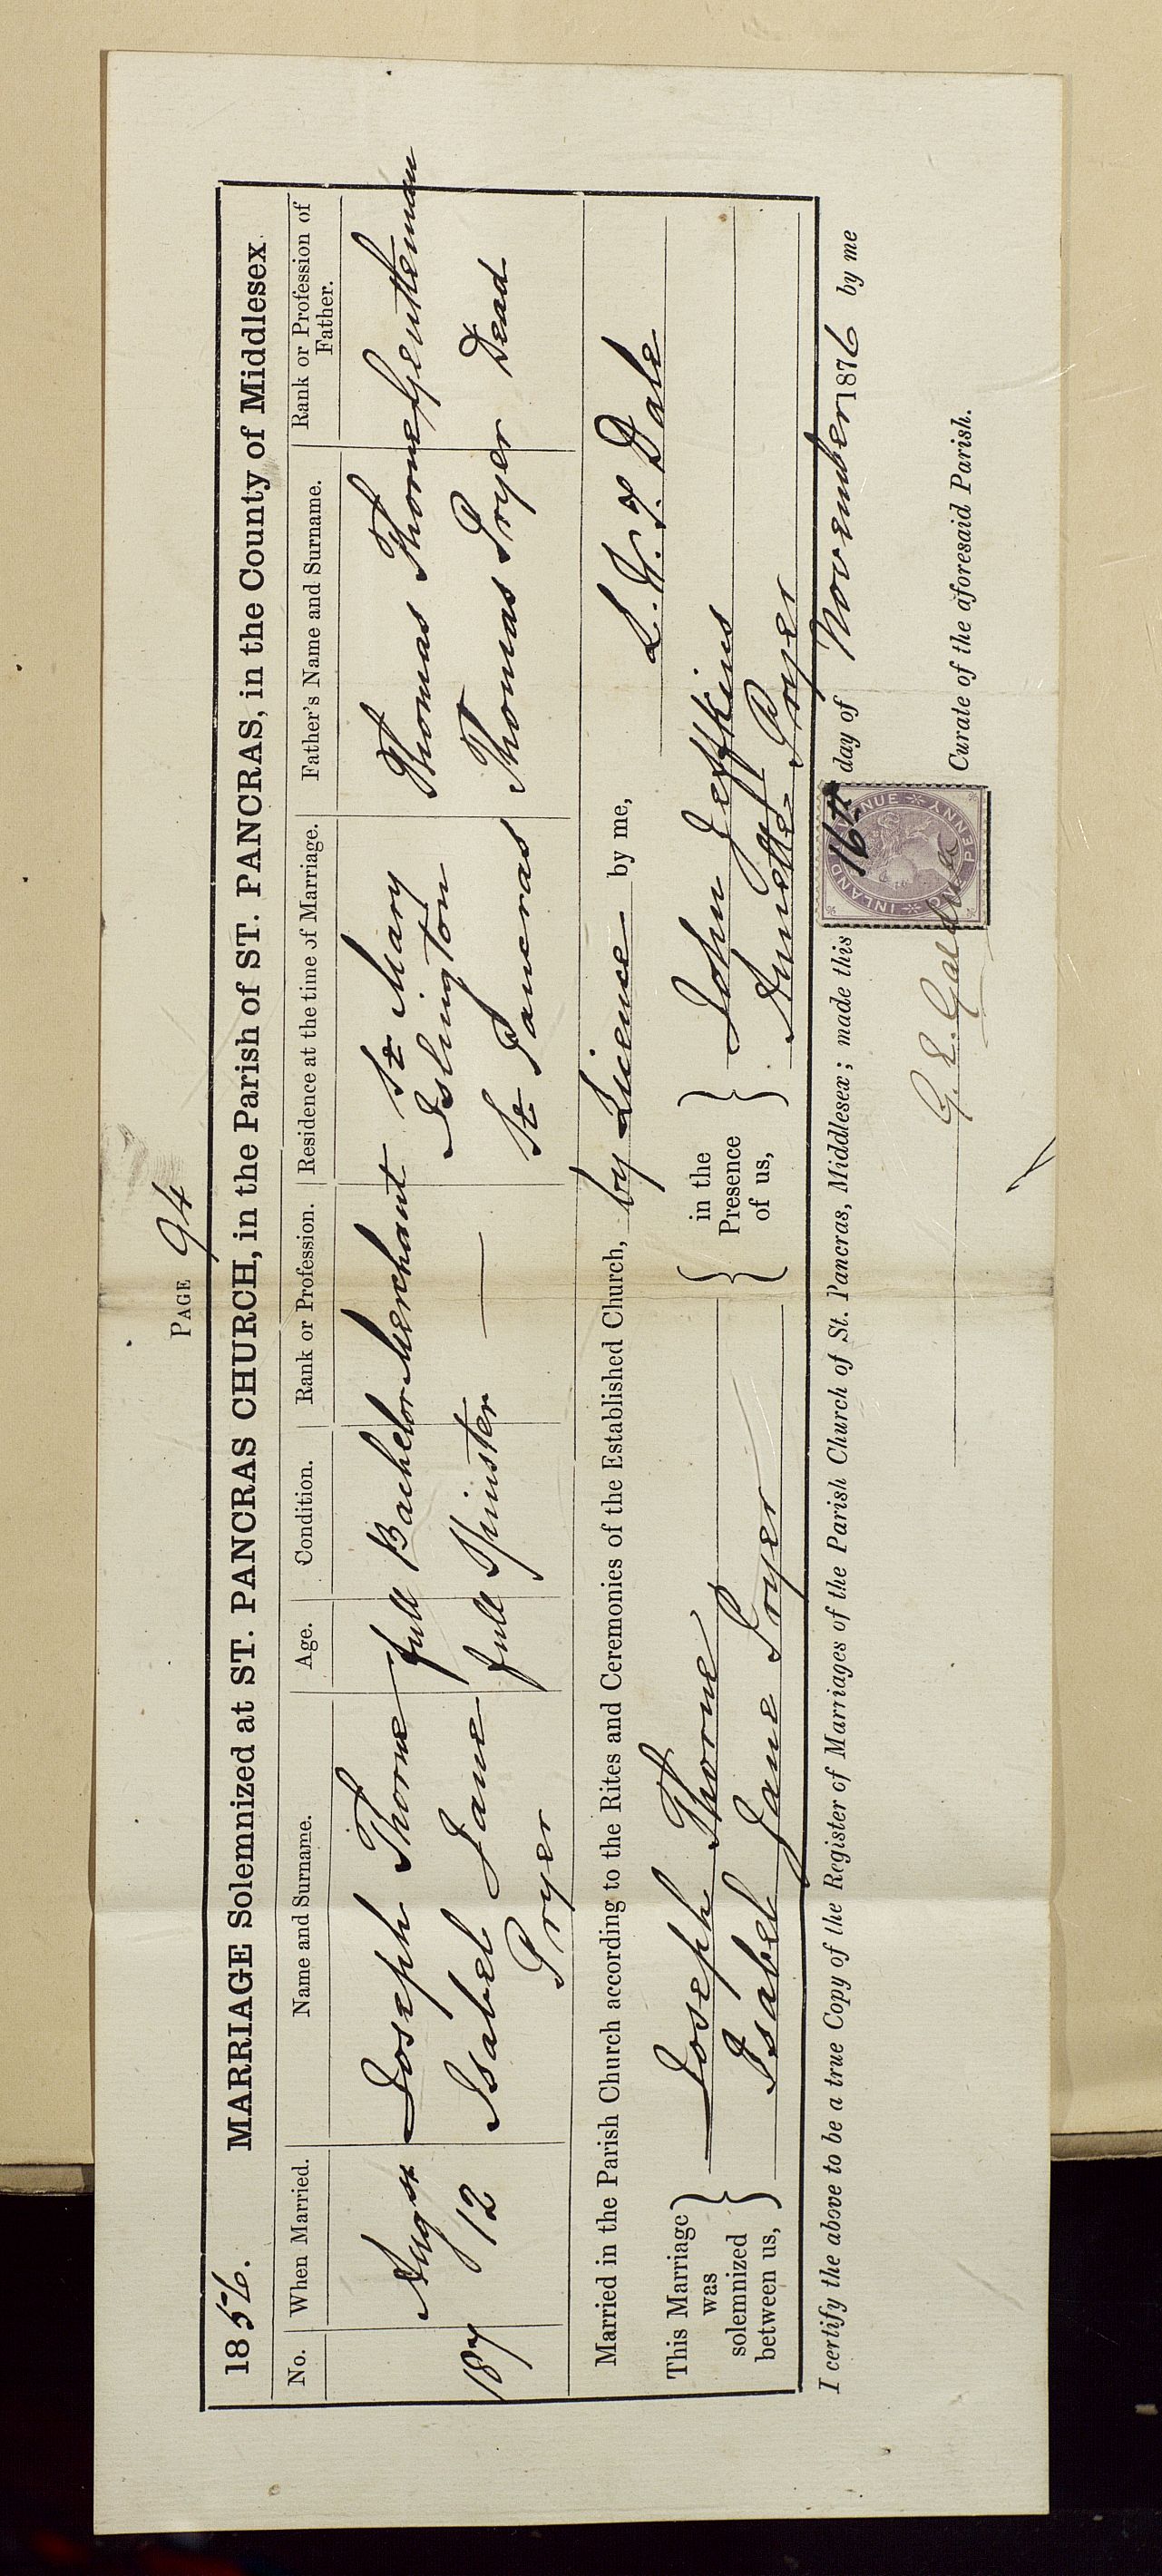 PAGE 94
1856. MARRIAGE Solemnized at ST. PANCRAS CHURCH, in the Parish of ST. PANCRAS, in the County of Middlesex.
No. When Married. Name and Surname. Age. Condition. Rank or Profession. Residence at the time of Marriage. Father's Name and Surname. Rank or Profession of Father.
187 Augst 12 Joseph Thorne full Bachelor Merchant St. Mary Islington Thomas Thorne Gentleman
Isabel Jane Pryer full Spinster — St. Pancras Thomas Pryer Dead
Married in the Parish Church according to the Rites and Ceremonies of the Established Church, by Licence by me,
L. W. T. Dale
This Marriage was solemnized between us, { Joseph Thorne
Isabel Jane Pryer } in the Presence of us, { John Jeffkins
Annette Pryer
I certify the above to be a true Copy of the Register of Marriages of the Parish Church of St. Pancras, Middlesex; made this 16th day of November 1876 by me
G. L.
Curate of the aforesaid Parish.
INLAND REVENUE
ONE PENNY